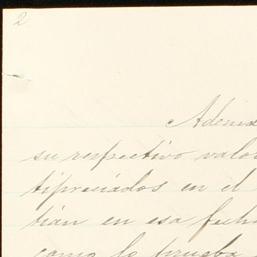 2
Ademas
su respectivo valor
tipreciados en el
tian en esa fecha
como lo prueba